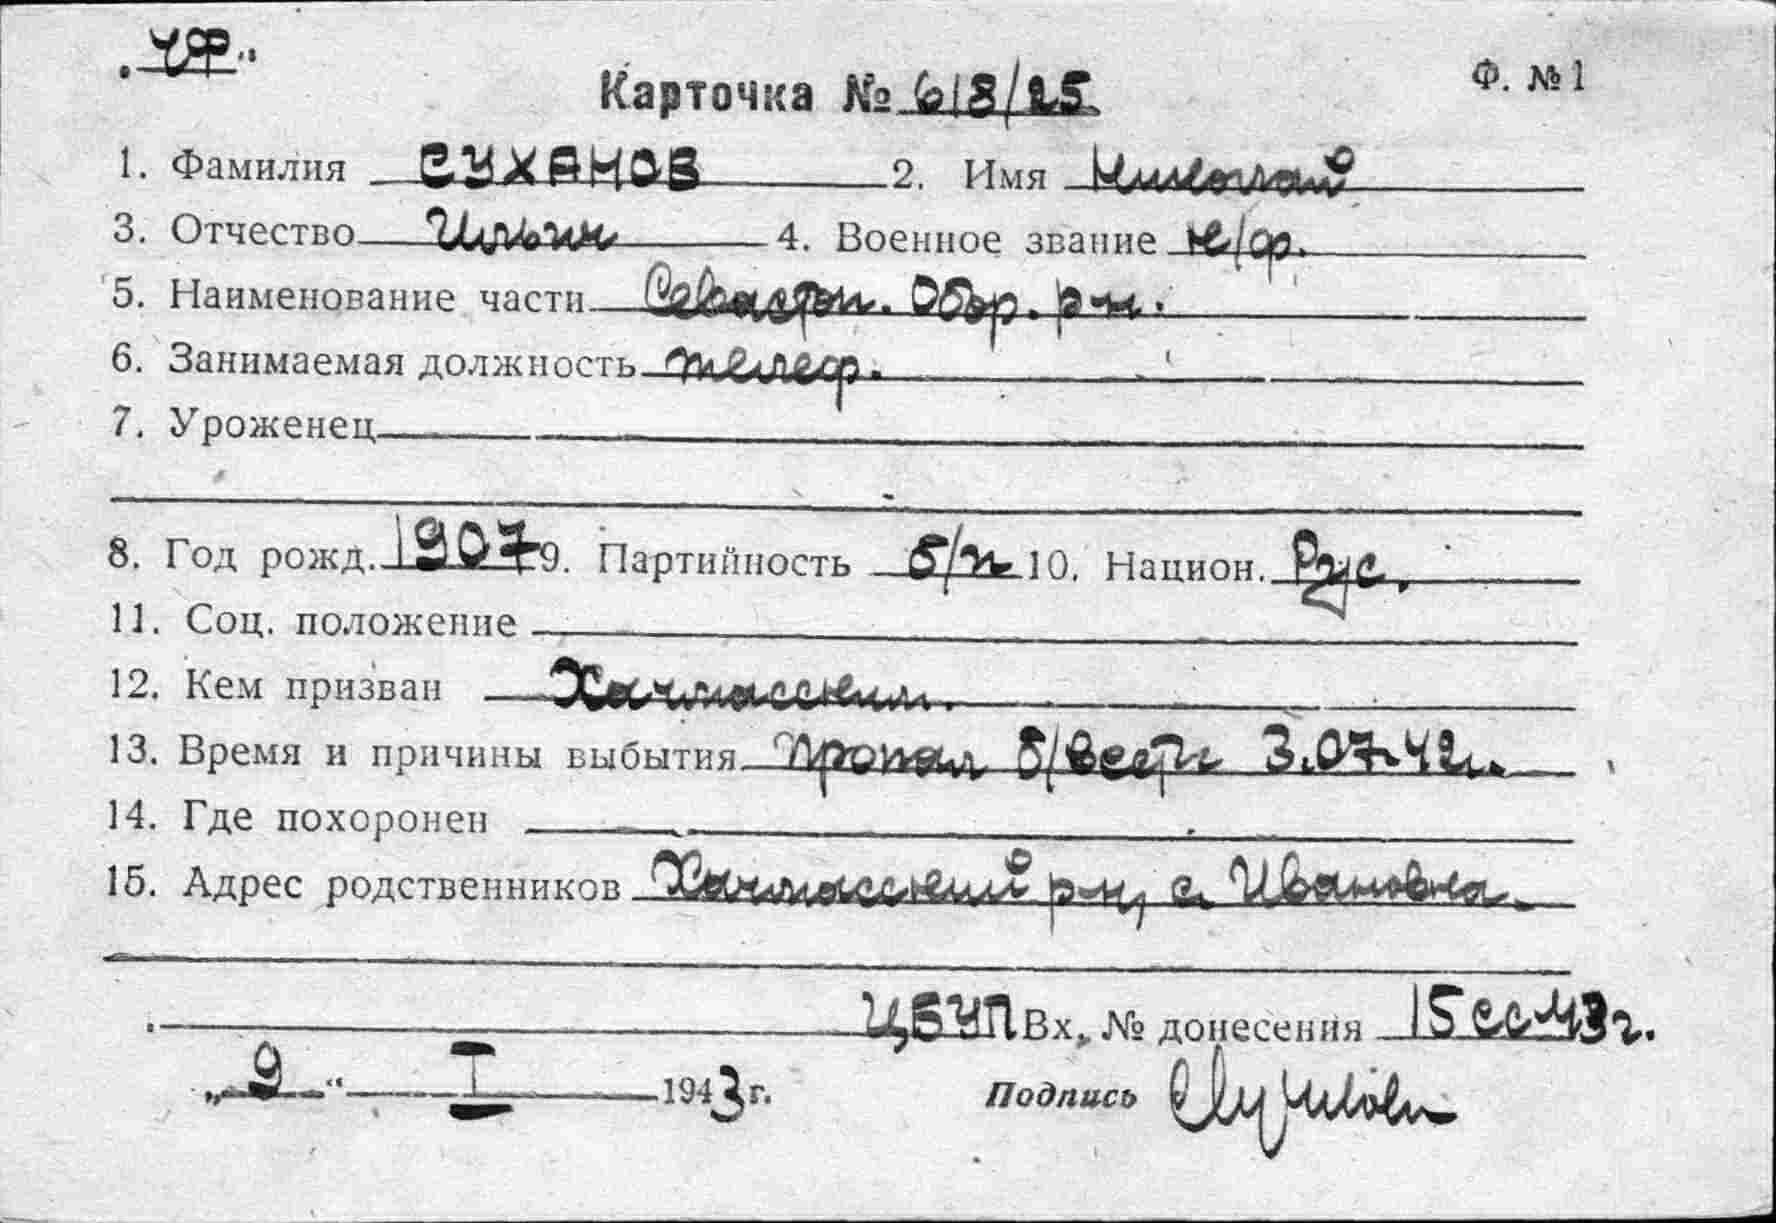 „ЧФ"
Карточка № 618/25 Ф. № 1
1. Фамилия СУХАНОВ 2. Имя Николай
3. Отчество Ильич 4. Военное звание к/ф.
5. Наименование части Севастоп. Обор. р-н.
6. Занимаемая должность телеф.
7. Уроженец
8. Год рожд. 1907 9. Партийность б/п 10. Национ. Рус.
11. Соц. положение
12. Кем призван Хачмасским.
13. Время и причины выбытия Пропал б/вести 3.07.42г.
14. Где похоронен
15. Адрес родственников Хачмасский р-н, с. Ивановка.
ЦБУП Вх. № донесения 15сс 43г.
„9" I 1943 г. Подпись